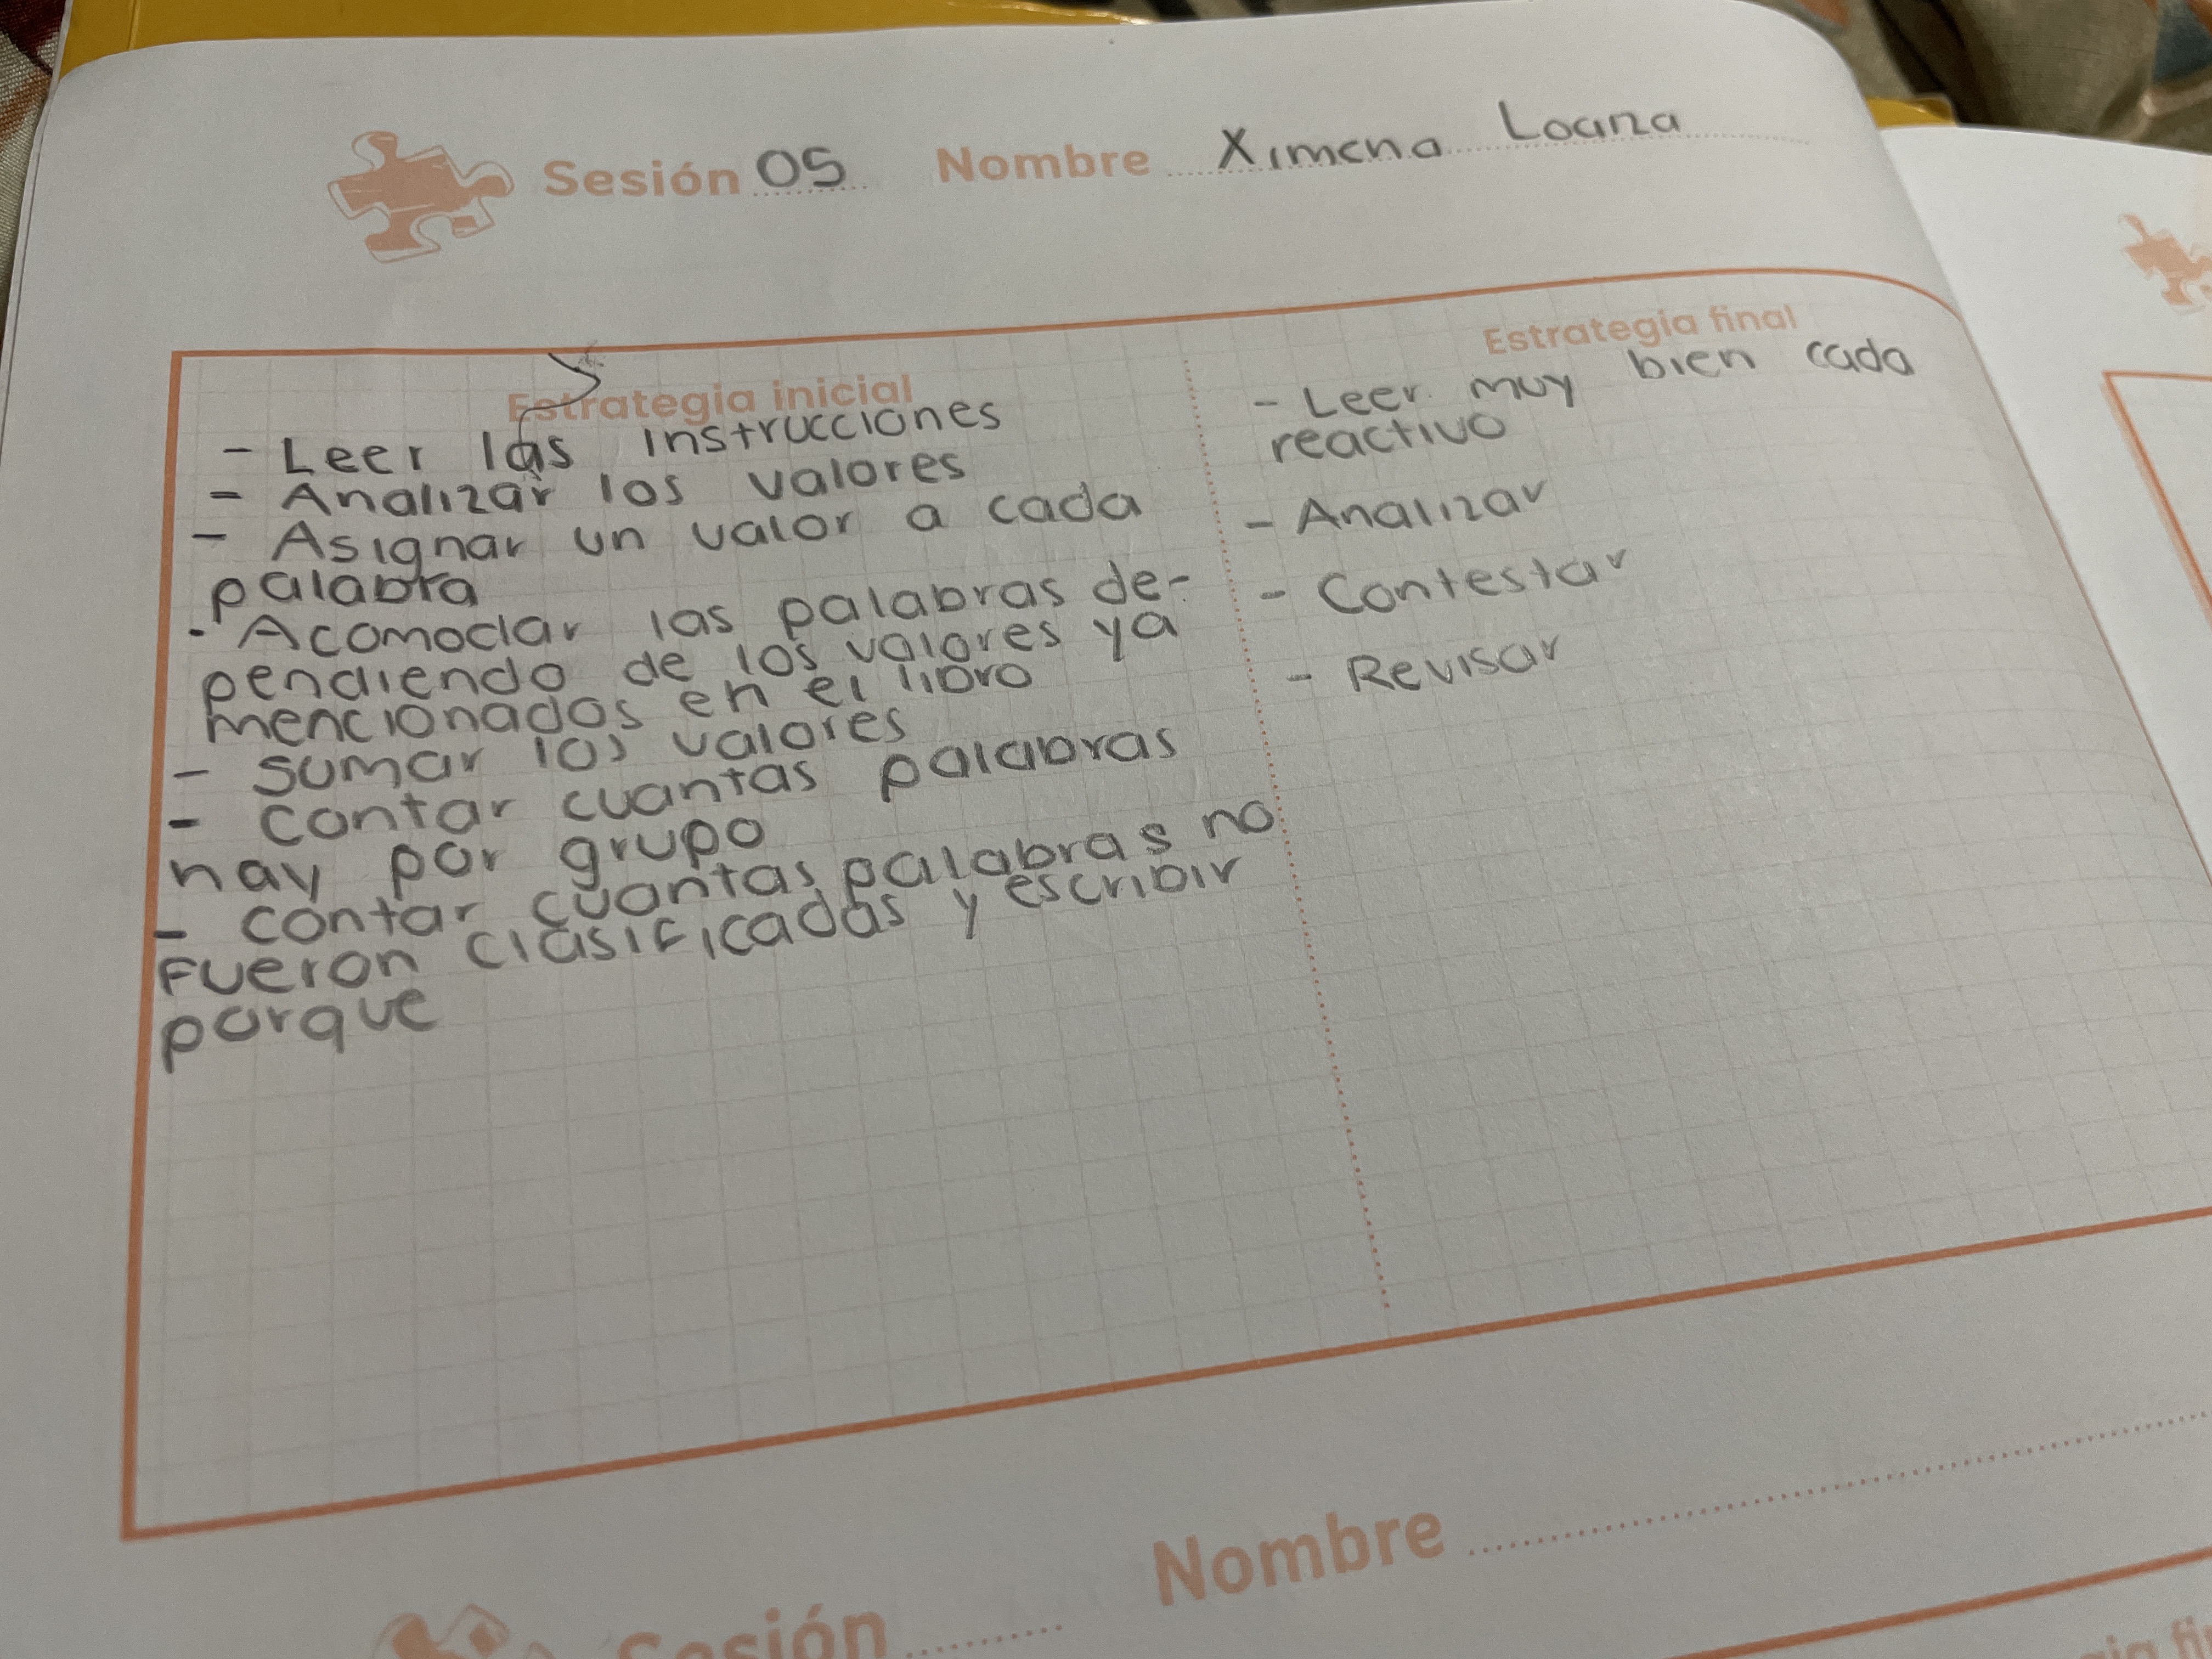 Sesión 05 Nombre Ximena Loana
Estrategia inicial
- Leer las instrucciones
- Analizar los valores
- Asignar un valor a cada
palabra
- Acomodar las palabras de-
pendiendo de los valores ya
mencionados en el libro
- Sumar los valores
- contar cuantas palabras
hay por grupo
- contar cuantas palabras no
fueron clasificadas y escribir
porque
Estrategia final
- Leer muy bien cada
reactivo
- Analizar
- Contestar
- Revisar
Sesión Nombre